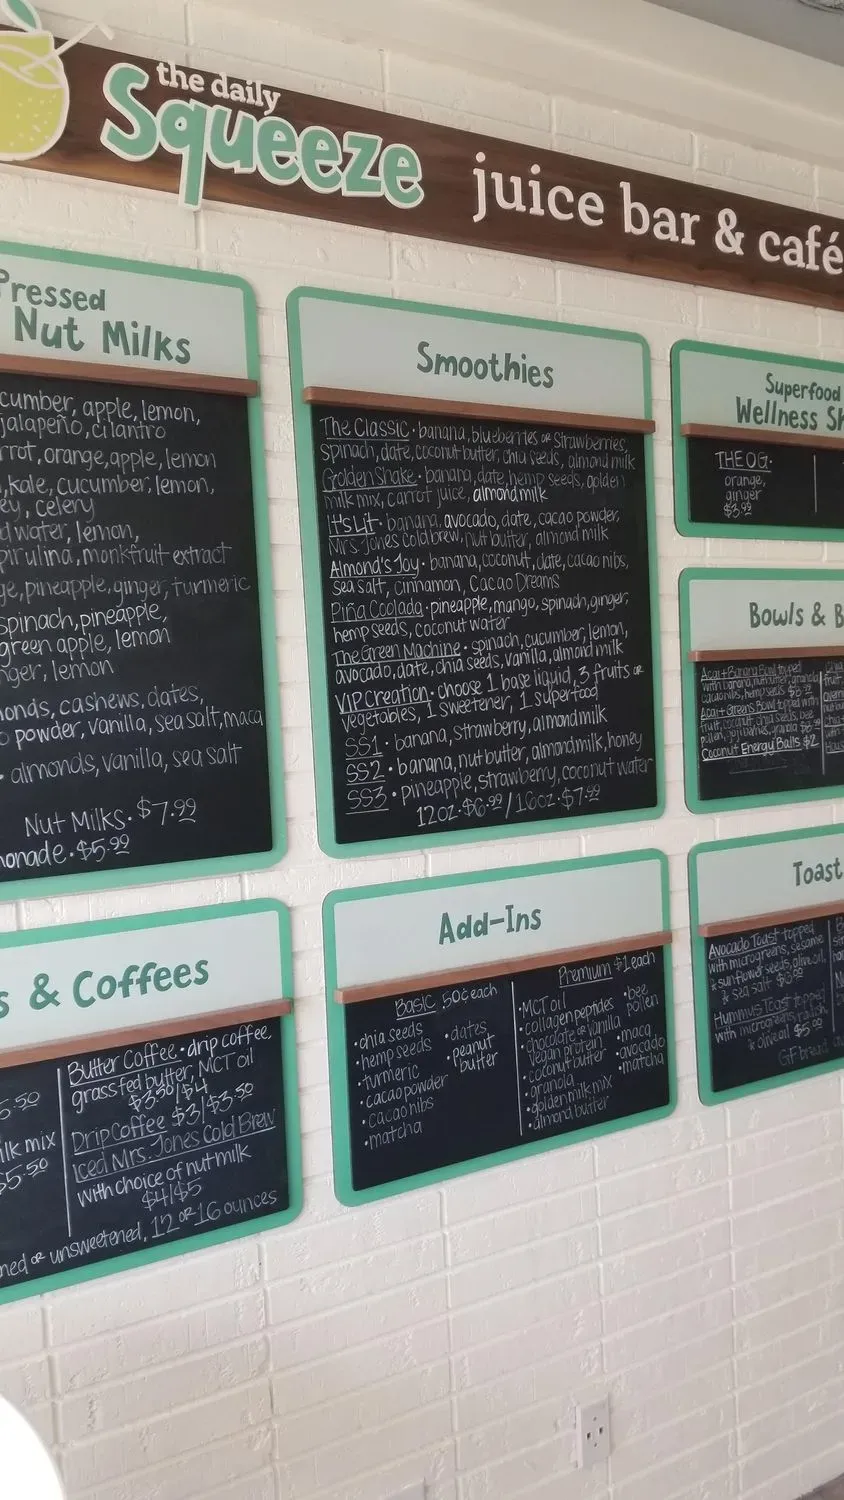 the daily
Squeeze
juice bar & café
Pressed
Nut Milks
cumber, apple, lemon,
jalapeño, cilantro
rrot, orange, apple, lemon
, kale, cucumber, lemon,
ey, celery
d water, lemon,
pirulina, monkfruit extract
ge, pineapple, ginger, turmeric
spinach, pineapple,
green apple, lemon
nger, lemon
onds, cashews, dates,
o powder, vanilla, sea salt, maca
• almonds, vanilla, sea salt
Nut Milks • $7.99
onade • $5.99
Smoothies
The Classic • banana, blueberries or strawberries,
spinach, date, coconut butter, chia seeds, almond milk
Golden Shake • banana, date, hemp seeds, golden
milk mix, carrot juice, almond milk
It's Lit • banana, avocado, date, cacao powder,
Mrs. Jones cold brew, nut butter, almond milk
Almond's Joy • banana, coconut, date, cacao nibs,
sea salt, cinnamon, Cacao Dreams
Piña Coolada • pineapple, mango, spinach, ginger,
hemp seeds, coconut water
The Green Machine • spinach, cucumber, lemon,
avocado, date, chia seeds, vanilla, almond milk
VIP Creation • choose 1 base liquid, 3 fruits or
vegetables, 1 sweetener, 1 superfood
SS1 • banana, strawberry, almond milk
SS2 • banana, nut butter, almond milk, honey
SS3 • pineapple, strawberry, coconut water
12oz • $6.99 / 16oz • $7.99
Superfood
Wellness Sh
THE O.G.
orange,
ginger
$3.99
Bowls & B
Acai + Banana Bowl topped
with banana, nut butter, granola
cacao nibs, hemp seeds
Acai + Greens Bowl topped with
fruit, coconut, chia seeds, bee
pollen, goji berries, granola
Coconut Energy Balls $2
s & Coffees
5.50
ilk mix
$5.50
Butter Coffee • drip coffee,
grassfed butter, MCT oil
$3.50/$4
Drip Coffee $3/$3.50
Iced Mrs. Jones Cold Brew
with choice of nut milk
$4/$5
ned or unsweetened, 12 or 16 ounces
Add-Ins
Basic 50¢ each
• chia seeds
• hemp seeds
• turmeric
• cacao powder
• cacao nibs
• matcha
• dates
• peanut
butter
Premium $1 each
• MCT oil
• collagen peptides
• chocolate or vanilla
vegan protein
• coconut butter
• granola
• golden milk mix
• almond butter
• bee
pollen
• maca
• avocado
• matcha
Toast
Avocado Toast topped
with microgreens, sesame
& sunflower seeds, olive oil,
& sea salt
Hummus Toast topped
with microgreens, radish,
& olive oil $5.00
GF bread